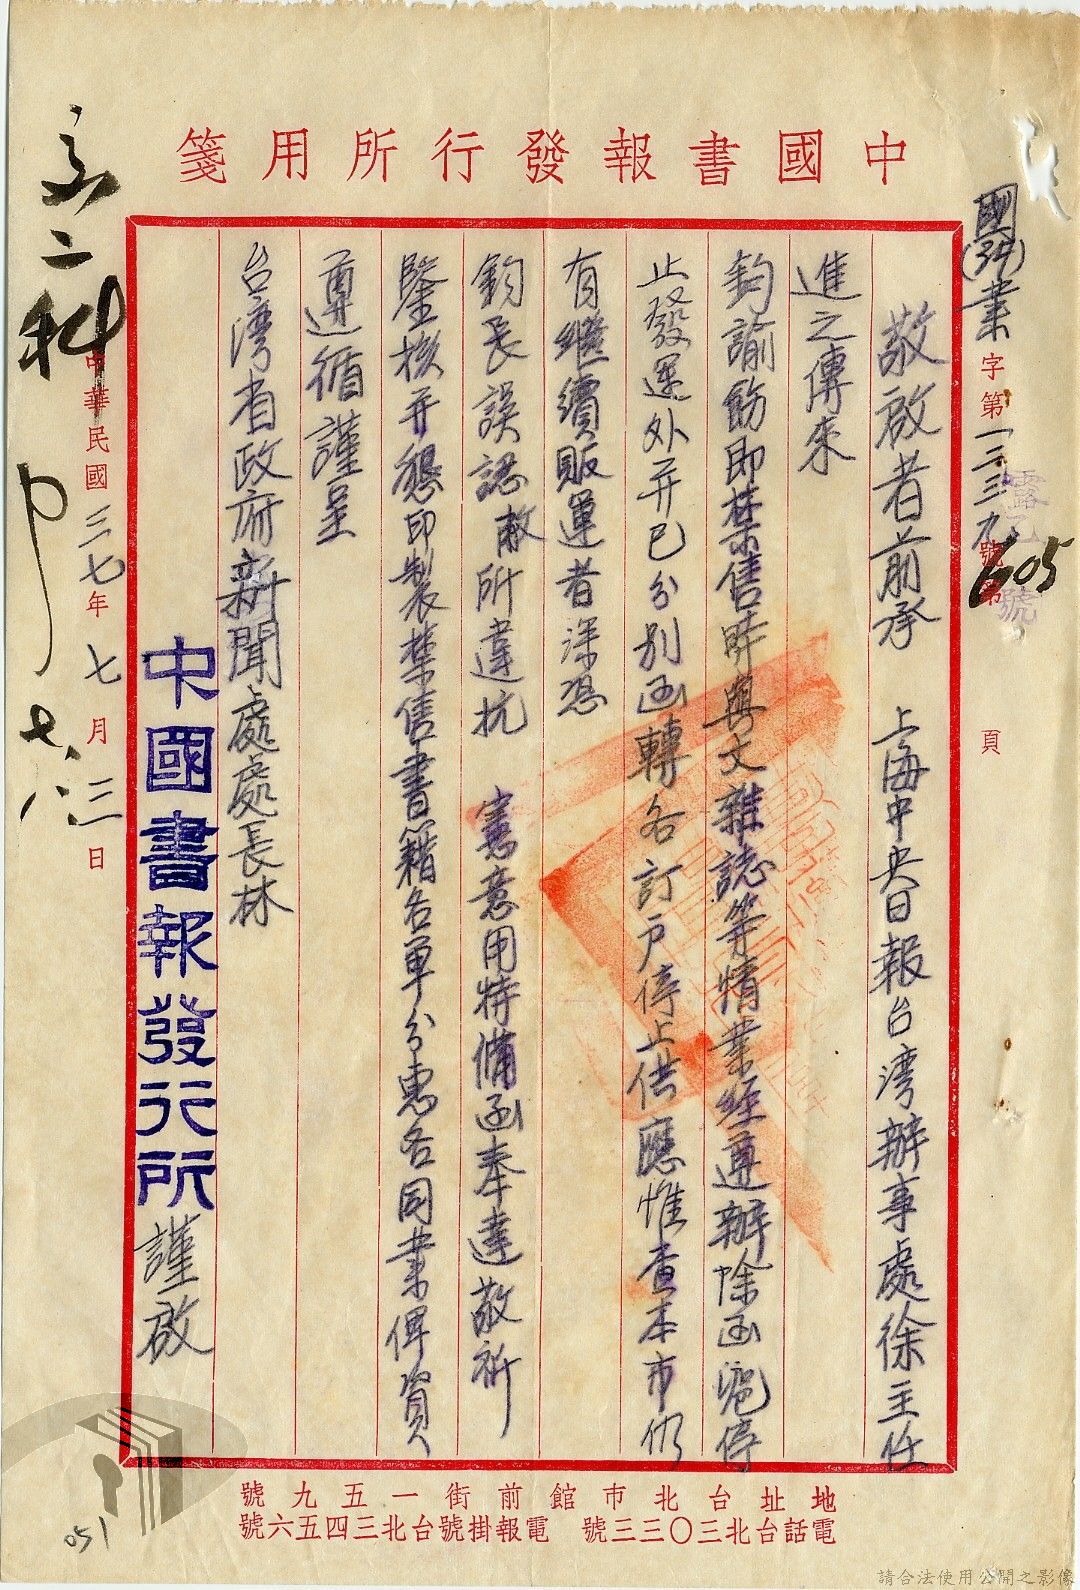 中國書報發行所用箋
國(37)業字第一三三九號第頁
605
敬啟者前承 上海中央日報台灣辦事處徐主任
進之傳來
鈞諭飭即禁售時與文雜誌等情業經遵辦除函滬停
止發運外并已分別函轉各訂戶停止供應惟查本市仍
有繼續販運者深恐
鈞長誤認敝所違抗 憲意用特備函奉達敬祈
鑒核并懇印製禁售書籍名單分惠各同業俾資
遵循謹呈
台灣省政府新聞處處長林
中國書報發行所謹啟
中華民國三七年七月三一日
二科
地址台北市館前街一五九號
電話台北三〇三三號 電報掛號台北三四五六號
051
請合法使用公開之影像